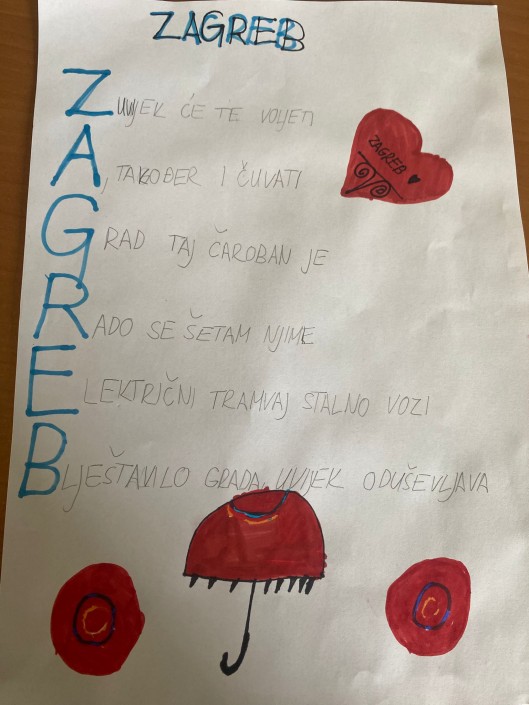 ZAGREB
Z UVIJEK ĆE TE VOLJETI
A, TAKOĐER I ČUVATI
ZAGREB
GRAD TAJ ČAROBAN JE
RADO SE ŠETAM NJIME
ELEKTRIČNI TRAMVAJ STALNO VOZI
BLJEŠTAVILO GRADA UVIJEK ODUŠEVLJAVA